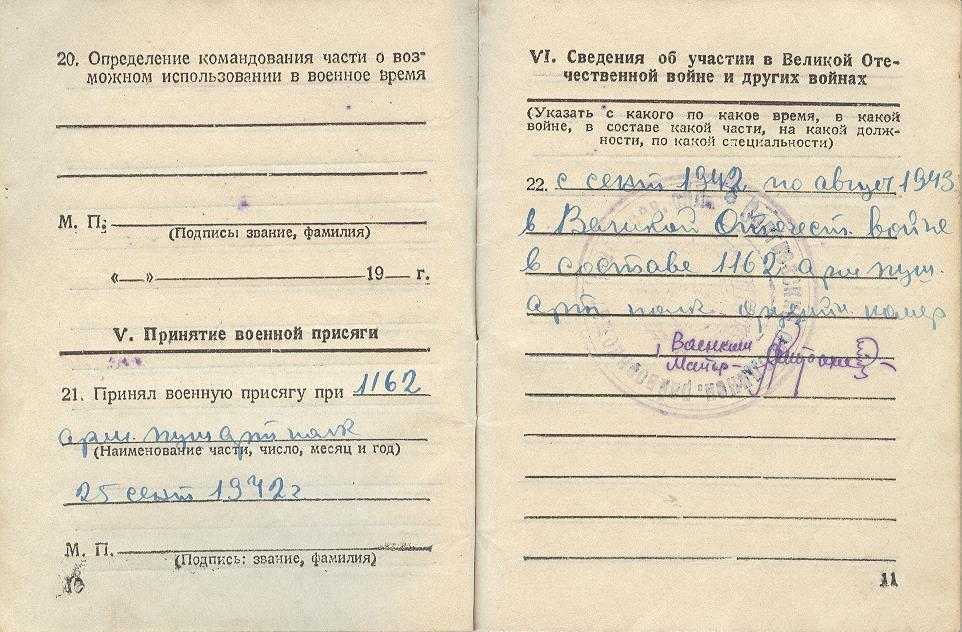 20. Определение командования части о воз-
можном использовании в военное время
М. П.
(Подпись: звание, фамилия)
«—» 19— г.
V. Принятие военной присяги
21. Принял военную присягу при 1162
арм. пуш арт полк
(Наименование части, число, месяц и год)
25 сент 1942 г
М. П.
(Подпись: звание, фамилия)
10
VI. Сведения об участии в Великой Оте-
чественной войне и других войнах
(Указать с какого по какое время, в какой
войне, в составе какой части, на какой долж-
ности, по какой специальности)
22. с сент 1942 по август 1943
в Великой Отечест. войне
в составе 1162 арм пуш.
арт полк орудийн. номер
Военком
Майор
11